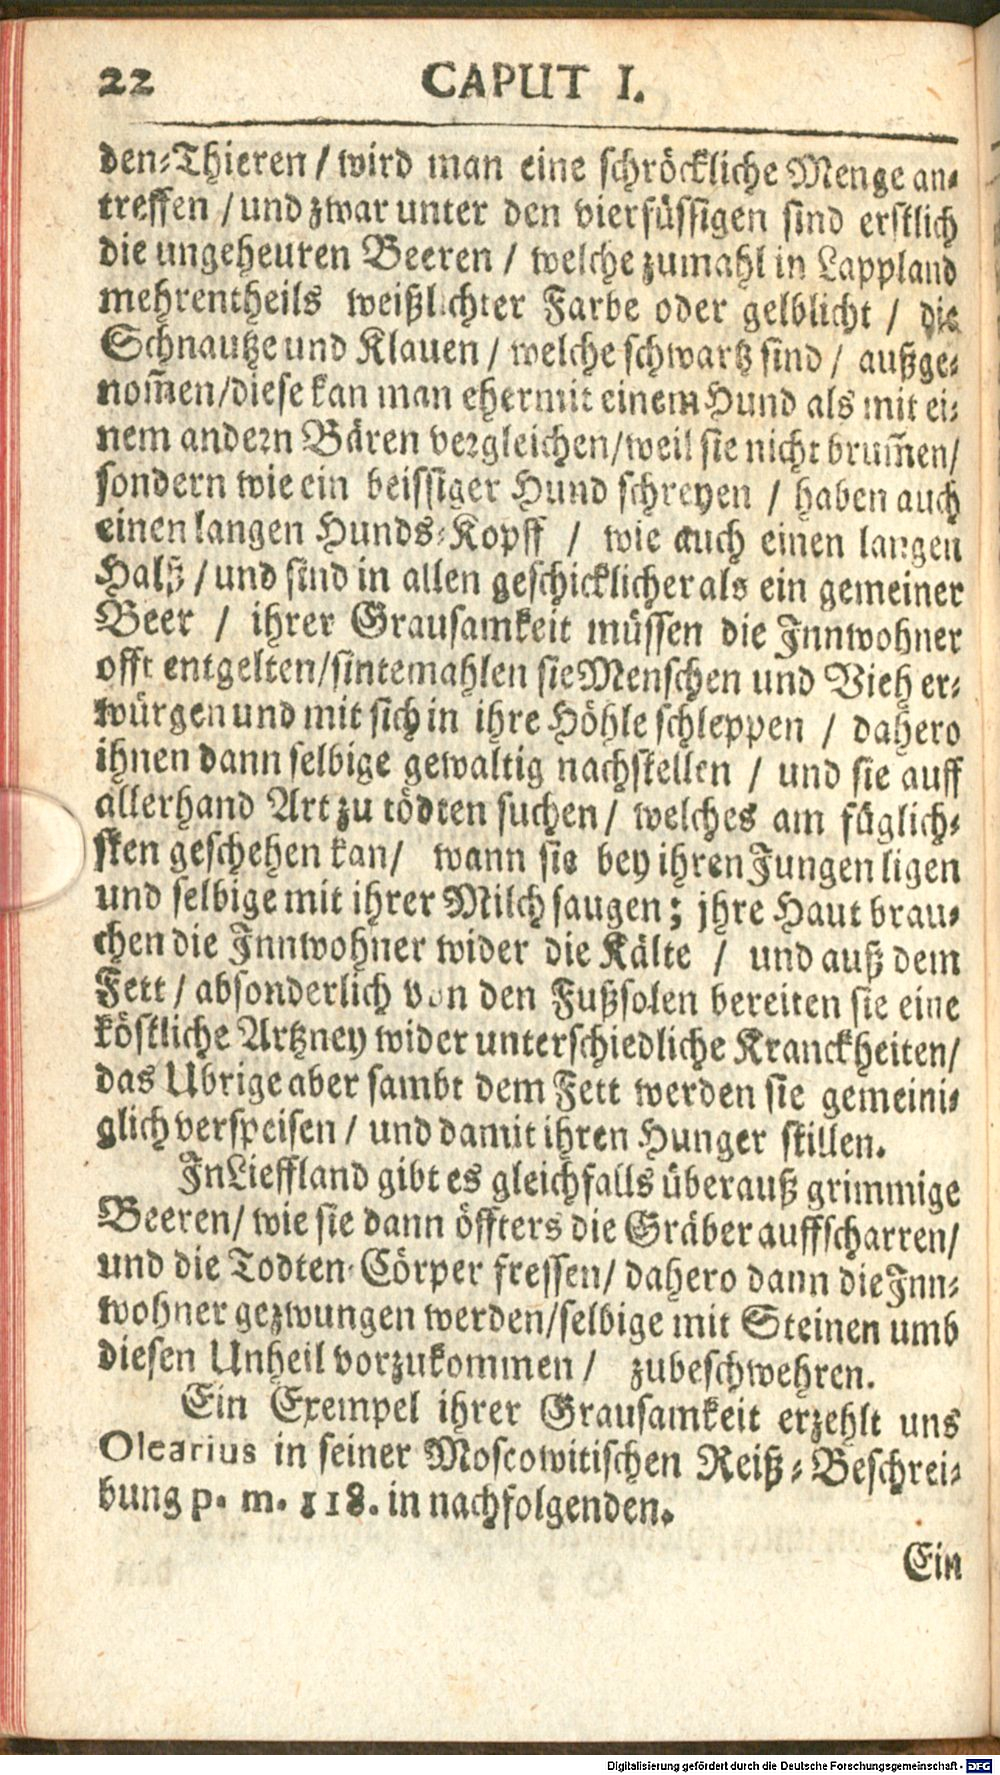 22 CAPUT I.
den-Thieren / wird man eine schröckliche Menge an-
treffen / und zwar unter den vierfüssigen sind erstlich
die ungeheuren Beeren / welche zumahl in Lappland
mehrentheils weißlichter Farbe oder gelblicht / die
Schnautze und Klauen / welche schwartz sind / außge-
nom̄en/diese kan man eher mit einem Hund als mit ei-
nem andern Bären vergleichen/weil sie nicht brum̄en/
sondern wie ein beissiger Hund schreyen / haben auch
einen langen Hunds-Kopff / wie auch einen langen
Halß / und sind in allen geschicklicher als ein gemeiner
Beer / ihrer Grausamkeit müssen die Innwohner
offt entgelten/sintemahlen sie Menschen und Vieh er-
würgen und mit sich in ihre Höhle schleppen / dahero
ihnen dann selbige gewaltig nachstellen / und sie auff
allerhand Art zu tödten suchen / welches am füglich-
sten geschehen kan/ wann sie bey ihren Jungen ligen
und selbige mit ihrer Milch saugen; jhre Haut brau-
chen die Innwohner wider die Kälte / und auß dem
Fett / absonderlich von den Fußsolen bereiten sie eine
köstliche Artzney wider unterschiedliche Kranckheiten/
das Ubrige aber sambt dem Fett werden sie gemeini-
glich verspeisen / und damit ihren Hunger stillen.
In Lieffland gibt es gleichfalls überauß grimmige
Beeren/ wie sie dann öffters die Gräber auffscharren/
und die Todten-Cörper fressen/ dahero dann die Inn-
wohner gezwungen werden/selbige mit Steinen umb
diesen Unheil vorzukommen / zubeschwehren.
Ein Exempel ihrer Grausamkeit erzehlt uns
Olearius in seiner Moscowitischen Reiß-Beschrei-
bung p. m. 118. in nachfolgenden.
Ein
Digitalisierung gefördert durch die Deutsche Forschungsgemeinschaft - DFG